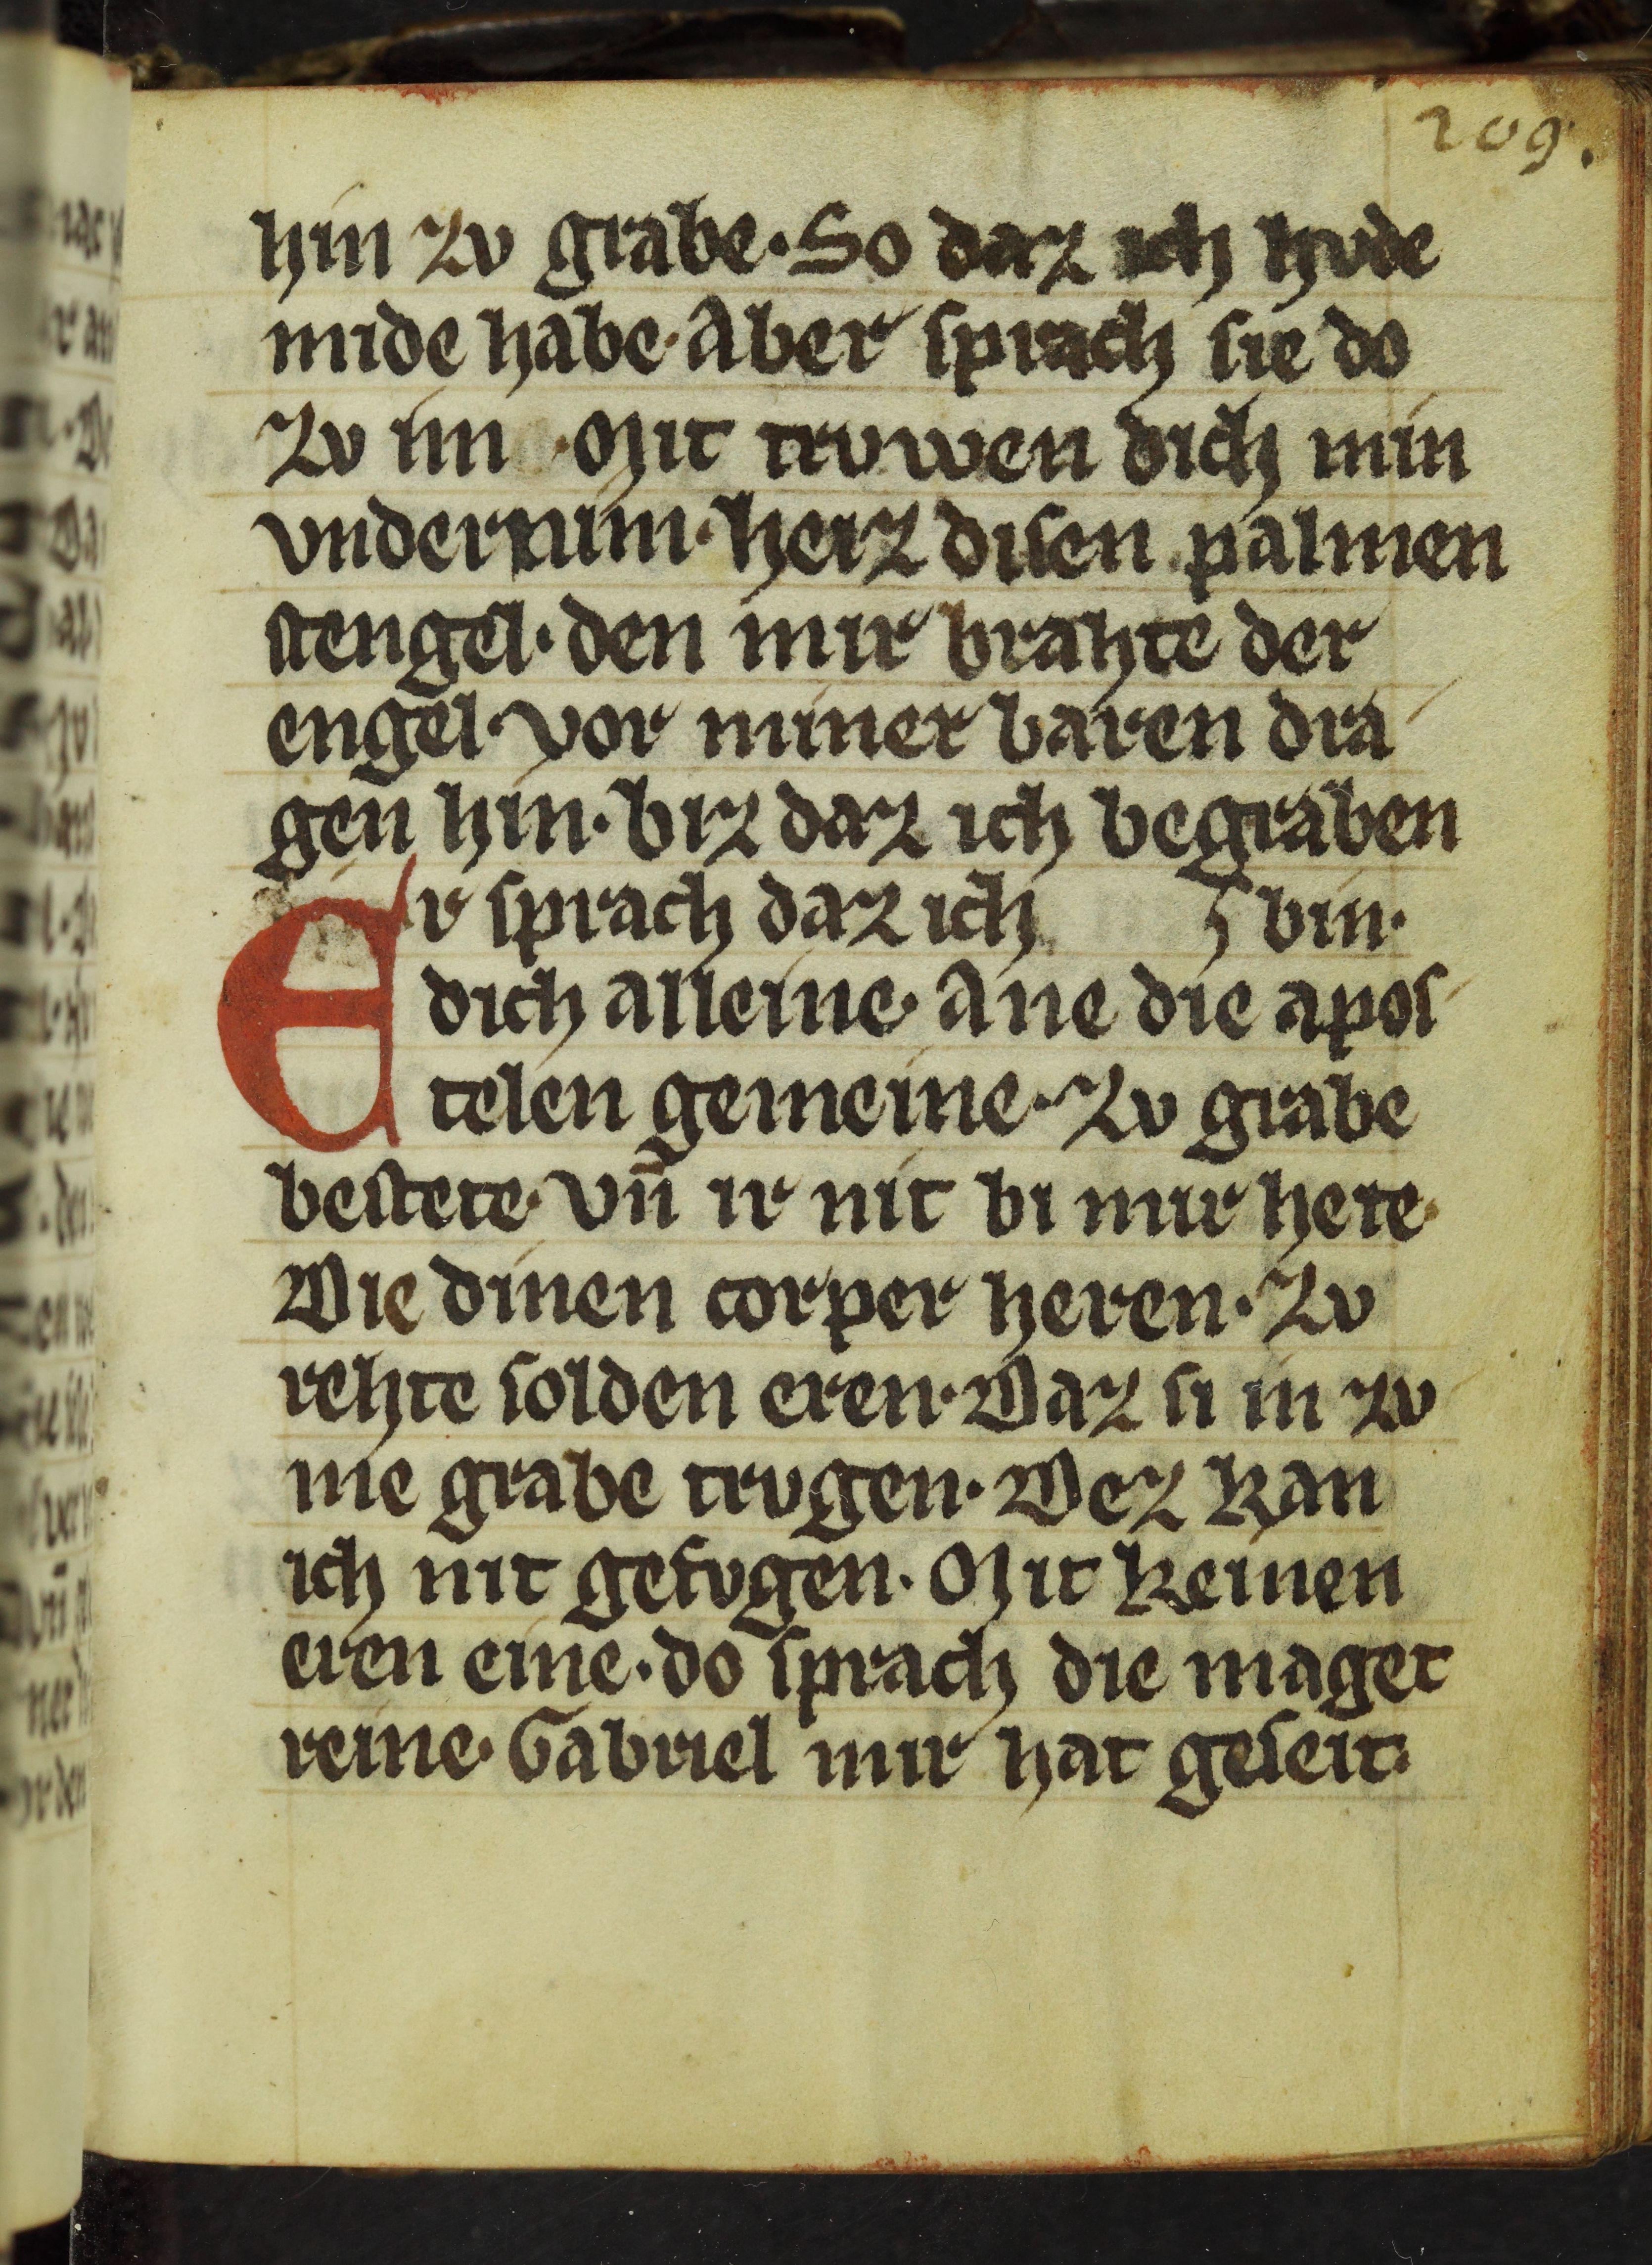 209.
hin zv grabe · So daz ich hvde
mide habe · Aber sprach sie do
zv im · Mit trvwen dich min
vndernim · herz disen palmen
stengel · den mir brahte der
engel · vor miner baren dra
gen hin · biz daz ich begraben
Er sprach daz ich bin ·
dich alleine · Ane die apos
telen gemeine · Zv grabe
bestete · vn̄ ir nit bi mir hete ·
Wie dinen corper heren · Zv
rehte solden eren · Daz si in zv
me grabe trvgen · Dez kan
ich nit gefvgen · Mit keinen
eren eine · do sprach die maget
reine · Gabriel mir hat geseit ·